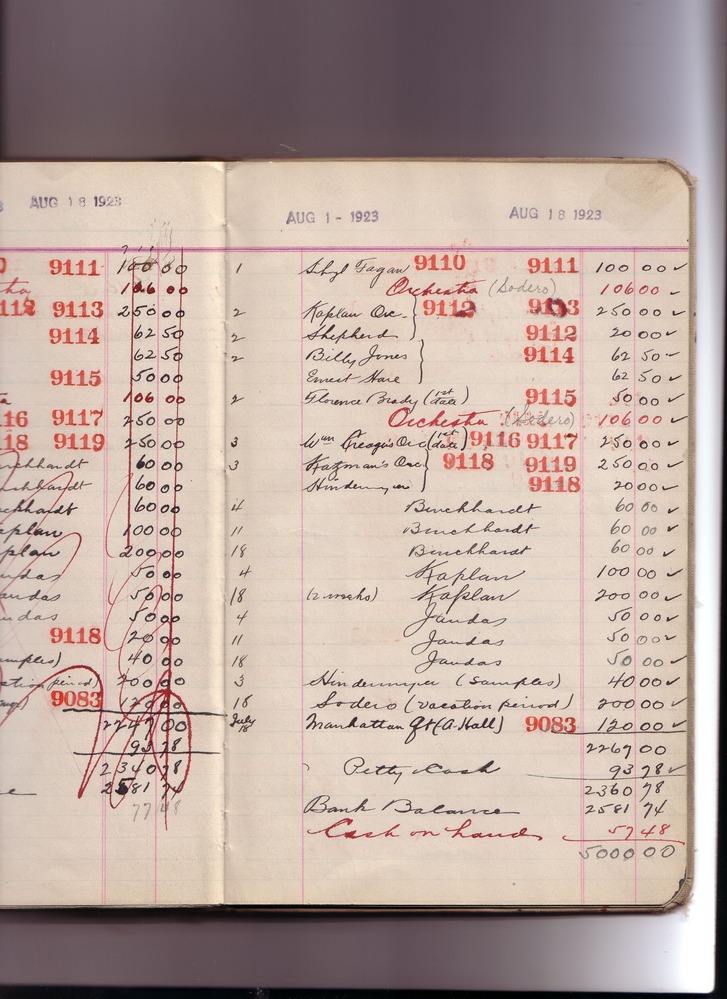 3 AUG 18 1923
0 9111 100 00
tha 106 00
112 9113 250 00
9114 62 50
62 50
9115 50 00
ta 106 00
116 9117 250 00
118 9119 250 00
60 00
60 00
60 00
aplan 100 00
plan 200 00
ndas 50 00
andas 50 00
ndas 50 00
9118 20 00
mples) 40 00
ation period) 200 00
9083 120 00
2247 00
93 78
2340 78
2581 74
77 48
AUG 1 - 1923 AUG 18 1923
1 Sibyl Fagan 9110 9111 100 00 ✓
Orchestra (Sodero) 106 00 ✓
2 Kaplan Orc. 9112 9113 250 00 ✓
2 Shepherd 9112 20 00 ✓
2 Billy Jones 9114 62 50 ✓
Ernest Hare 62 50 ✓
2 Florence Brady (1st date) 9115 50 00 ✓
Orchestra (Sodero) 106 00 ✓
3 Wm Creager's Orc (1st date) 9116 9117 250 00 ✓
3 Kazman's Orc 9118 9119 250 00 ✓
Hindermyer 9118 20 00 ✓
4 Burckhardt 60 00 ✓
11 Burckhardt 60 00 ✓
18 Burckhardt 60 00 ✓
4 Kaplan 100 00 ✓
18 (2 weeks) Kaplan 200 00 ✓
4 Jaudas 50 00 ✓
11 Jaudas 50 00 ✓
18 Jaudas 50 00 ✓
3 Hindermyer (Samples) 40 00 ✓
18 Sodero (vacation period) 200 00 ✓
July 18 Manhattan Qt (A. Hall) 9083 120 00 ✓
2267 00
Petty Cash 93 78 ✓
2360 78
Bank Balance 2581 74
Cash on hand 57 48
5000 00